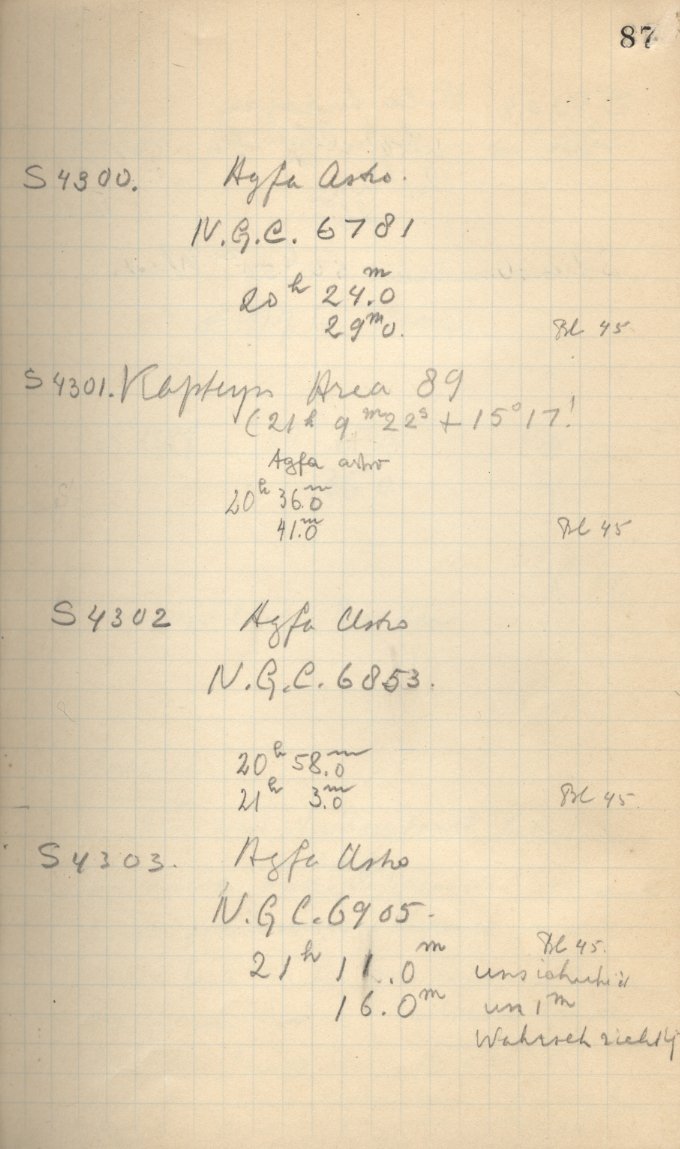 87
S 4300. Agfa Astro.
N.G.C. 6781
20h 24.m0
29m0. Bl 45
S 4301. Kapteyn Area 89
(21h 9m22s + 15°17!
Agfa astro
20h 36.m0
41.m0 Bl 45
S 4302 Agfa Astro
N.G.C. 6853.
20h 58.m0
21h 3.m0 Bl 45.
S 4303. Agfa Astro
N.G.C. 6905.
Bl 45.
21h 11.0m
16.0m um 1m
Wahrsch richtig